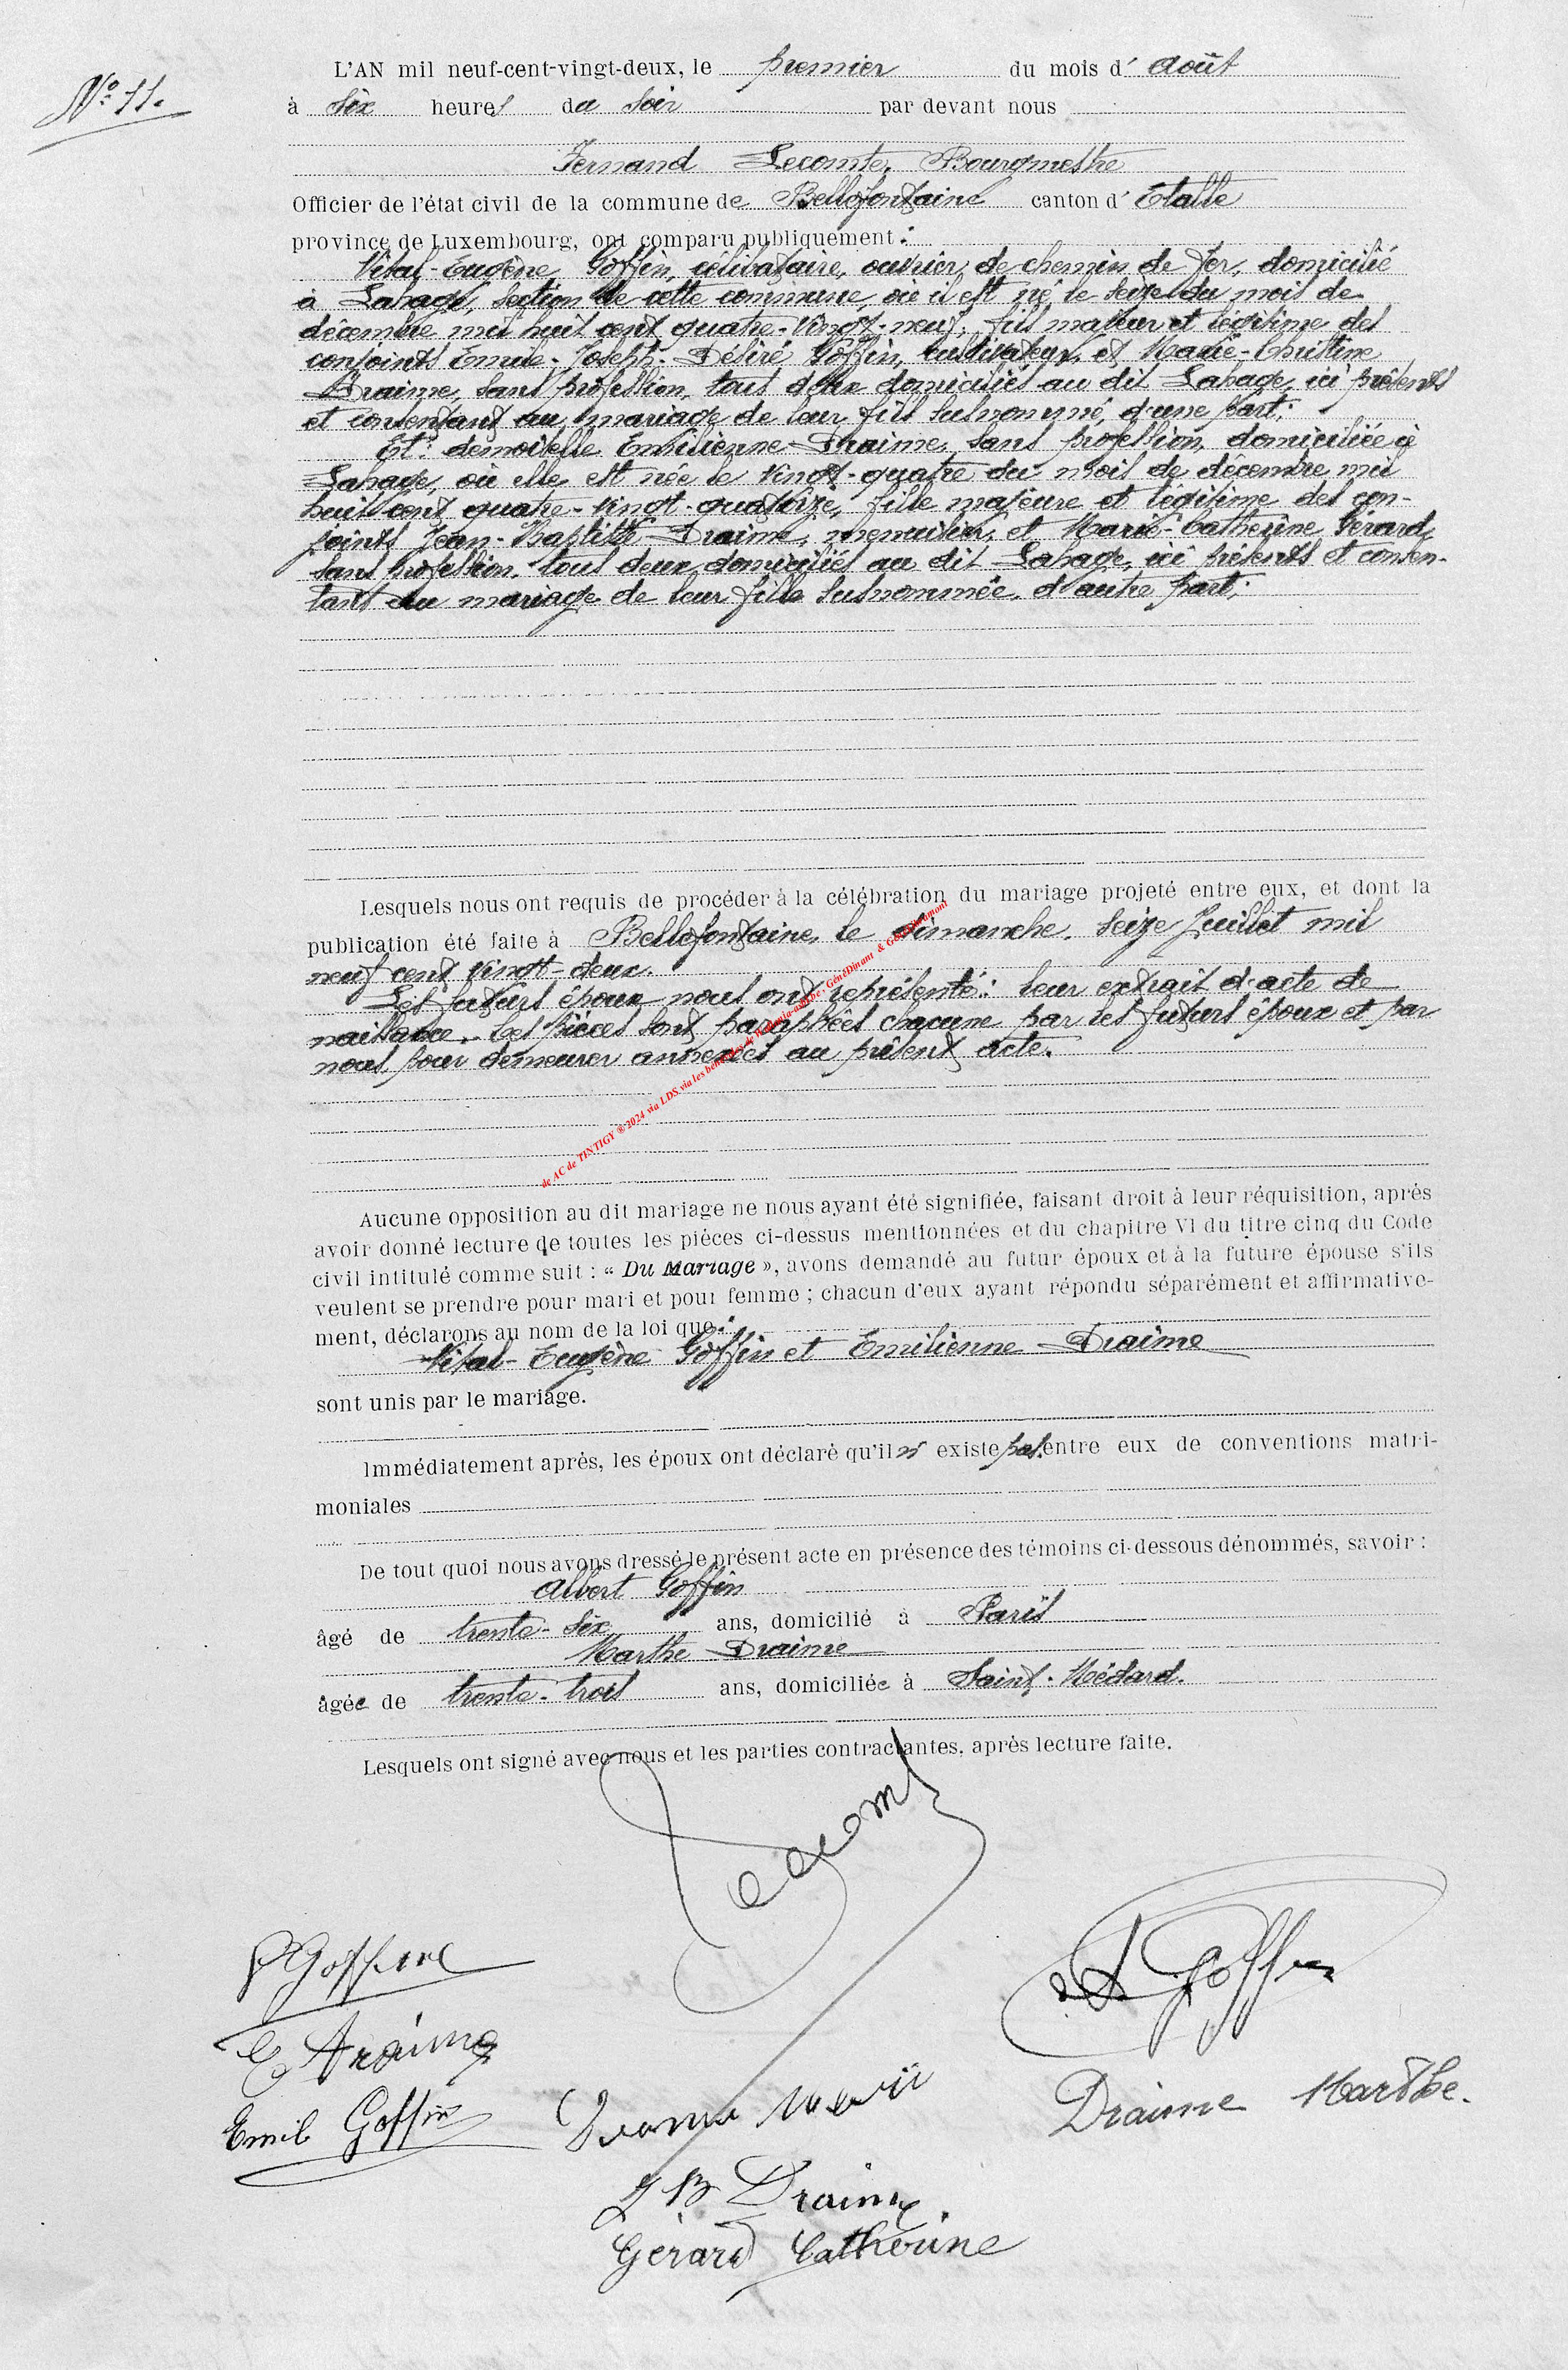 N° 11.
L'AN mil neuf-cent-vingt-deux, le premier du mois d' Août
à six heures du soir par devant nous
Fernand Lecomte, Bourgmestre
Officier de l'état civil de la commune de Bellefontaine canton d' Etalle
province de Luxembourg, ont comparu publiquement :
Vital-Eugène Goffin, célibataire, ouvrier de chemin de fer, domicilié
à Lahage, section de cette commune, où il est né le seize du mois de
décembre mil huit cent quatre-vingt-neuf, fils majeur et légitime des
conjoints Emile-Joseph-Désiré Goffin, cultivateur, et Marie-Christine
Draime, sans profession, tous deux domiciliés au dit Lahage, ici présents
et consentant au mariage de leur fils susnommé, d'une part;
Et: demoiselle Emilienne Draime, sans profession, domiciliée à
Lahage, où elle est née le vingt-quatre du mois de décembre mil
huit cent quatre-vingt-quatorze, fille majeure et légitime des con-
joints Jean-Baptiste Draime, menuisier, et Marie-Catherine Gérard,
sans profession, tous deux domiciliés au dit Lahage, ici présents et consen-
tants au mariage de leur fille susnommée, d'autre part;
Lesquels nous ont requis de procéder à la célébration du mariage projeté entre eux, et dont la
publication été faite à Bellefontaine, le dimanche, seize Juillet mil
neuf cent vingt-deux.
Les futurs époux nous ont représenté: leur extrait d'acte de
naissance. Ces pièces sont paraphées chacune par les futurs époux et par
nous pour demeurer annexées au présent acte.
de AC de TINTIGY ® 2024 via LDS via les bénévoles de & GénéDinant &
Aucune opposition au dit mariage ne nous ayant été signifiée, faisant droit à leur réquisition, après
avoir donné lecture de toutes les pièces ci-dessus mentionnées et du chapitre VI du titre cinq du Code
civil intitulé comme suit : « Du Mariage », avons demandé au futur époux et à la future épouse s'ils
veulent se prendre pour mari et pour femme ; chacun d'eux ayant répondu séparément et affirmative-
ment, déclarons au nom de la loi que :
Vital-Eugène Goffin et Emilienne Draime
sont unis par le mariage.
Immédiatement après, les époux ont déclaré qu'il n' existe pas entre eux de conventions matri-
moniales
De tout quoi nous avons dressé le présent acte en présence des témoins ci-dessous dénommés, savoir :
Albert Goffin
âgé de trente-six ans, domicilié à Paris
Marthe Draime
âgée de trente-trois ans, domiciliée à Saint-Médard.
Lesquels ont signé avec nous et les parties contractantes, après lecture faite.
Lecomte
Goffin
Goffin
E Draime
Emile Goffin
Draime Marie
Draime Marthe.
J B Draime
Gérard Catherine